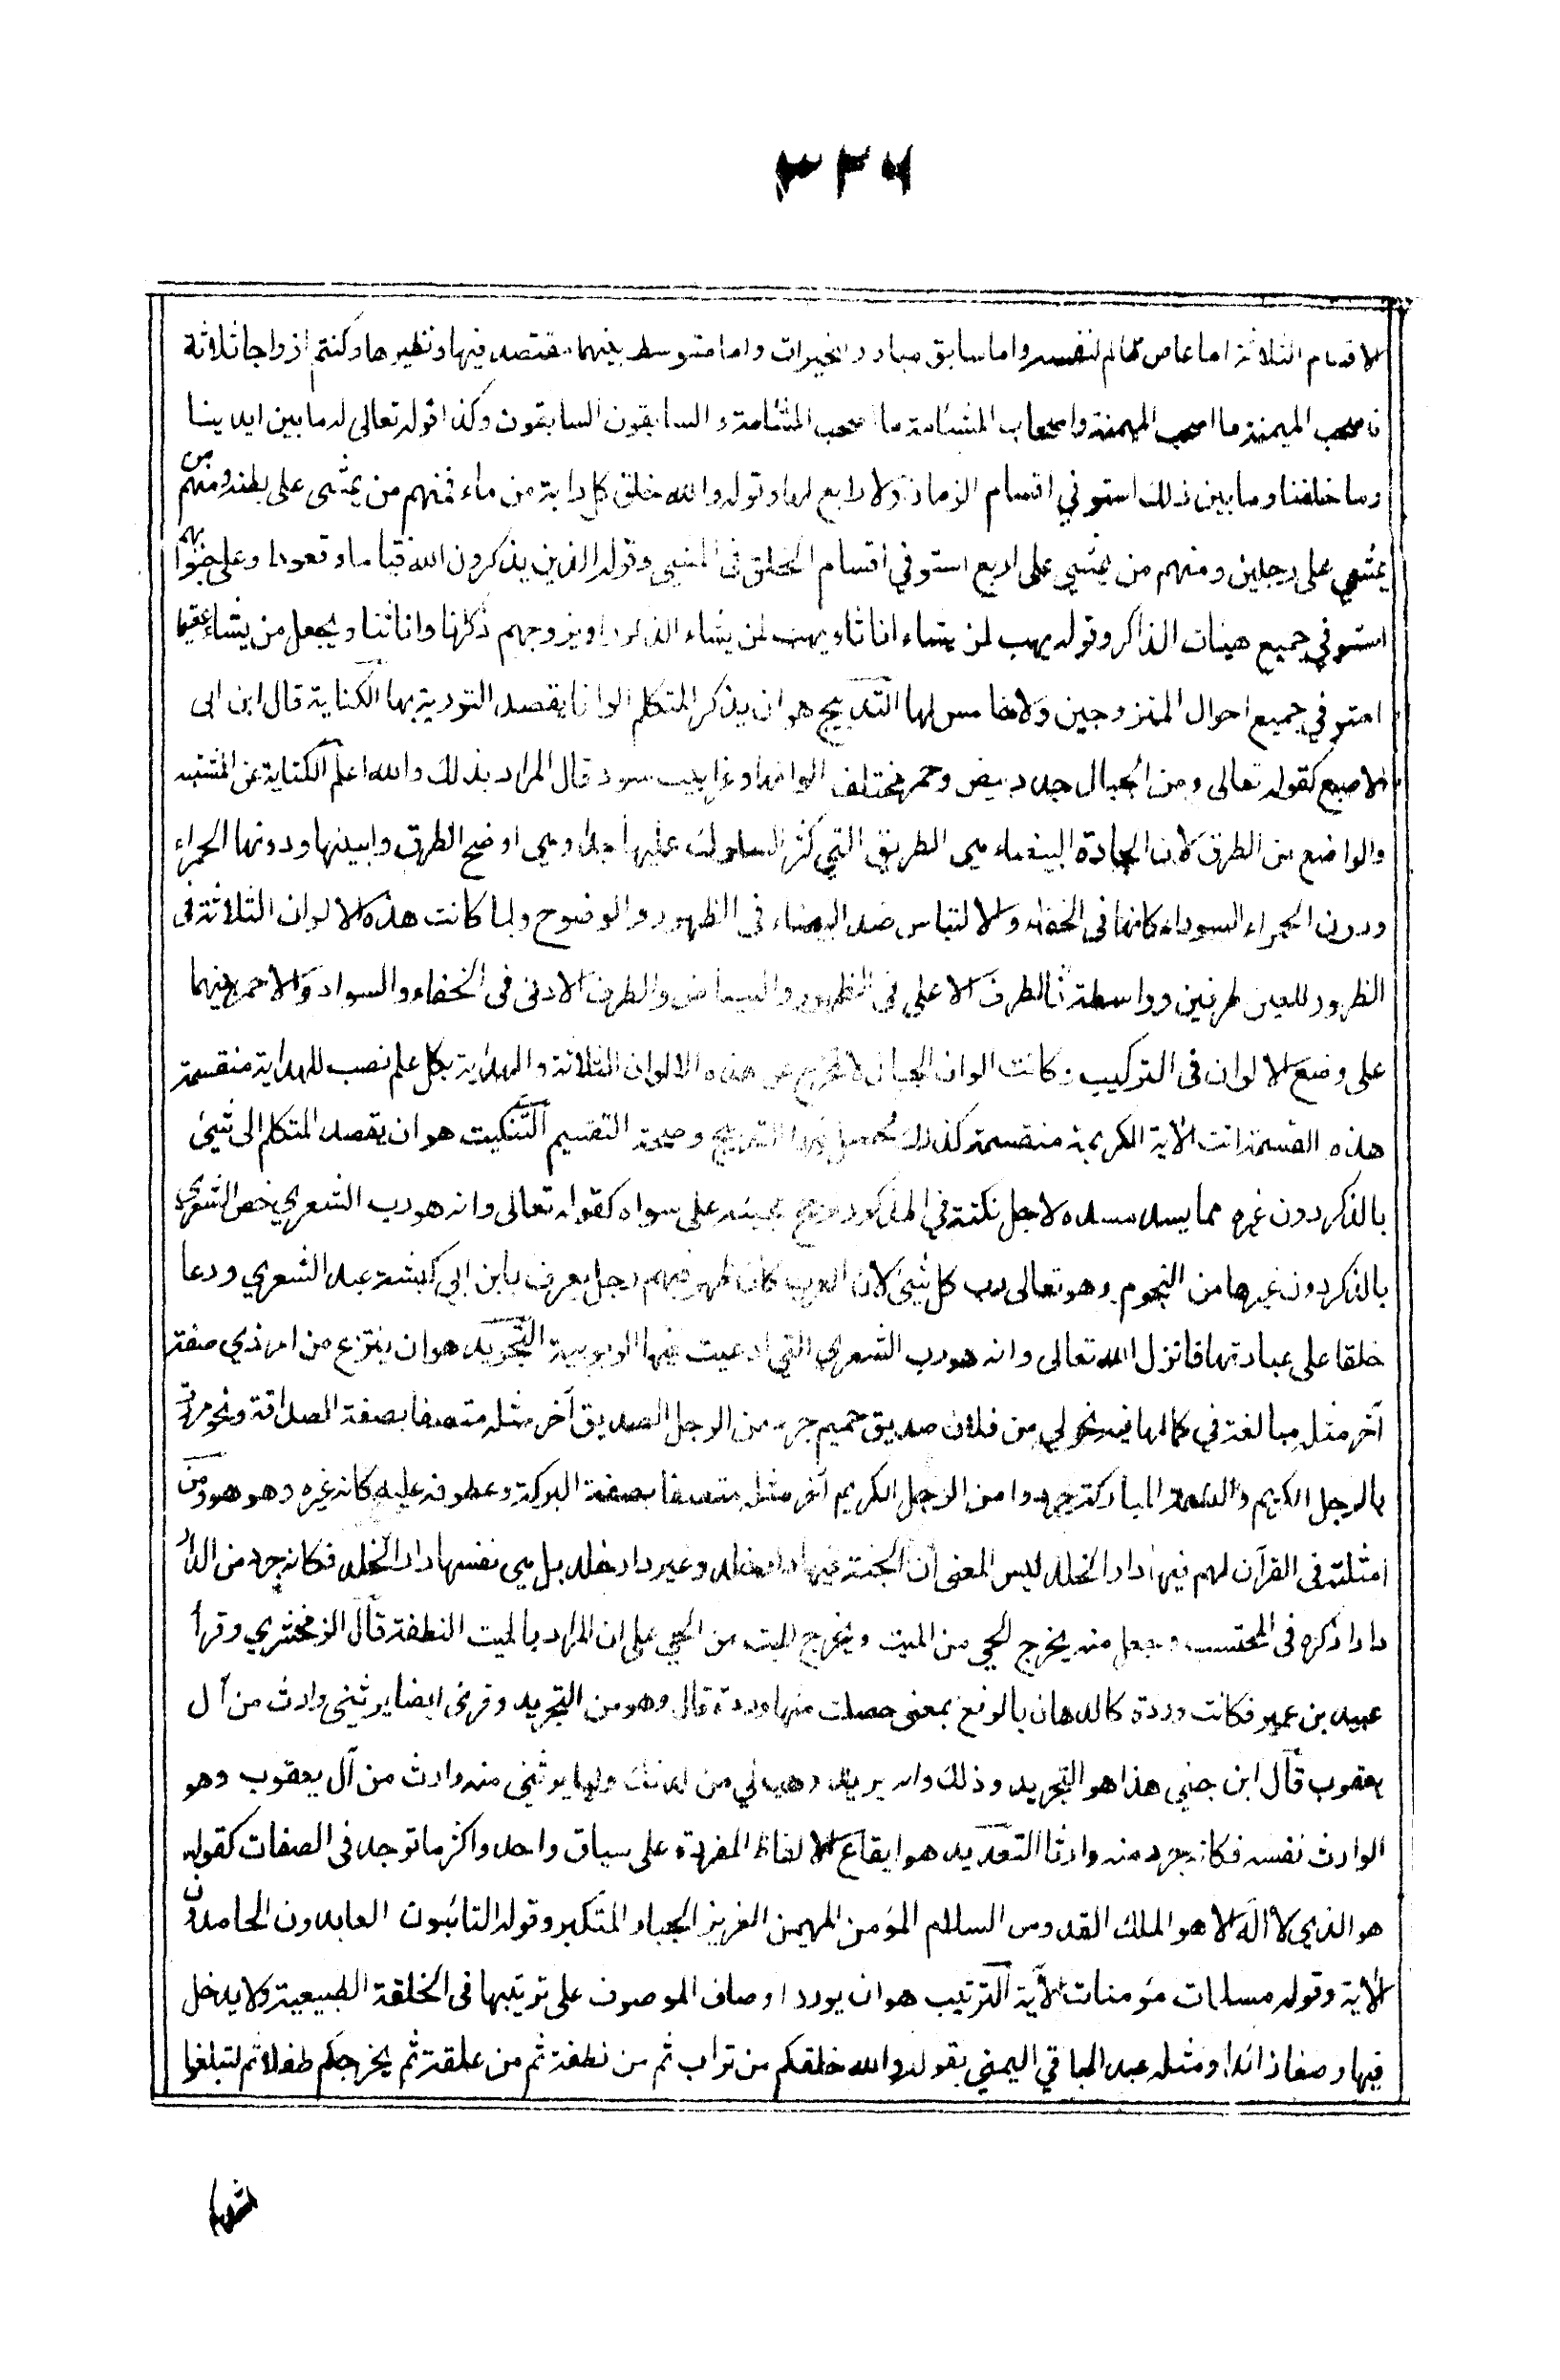 ٣٣٦
الاقسام الثلاثة اما عاص ظالم لنفسه واما سابق مبادر للخيرات واما متوسط بينهما مقتصد فيها ونظيرها وكنتم ازواجا ثلاثة
فاصحب الميمنة ما اصحب الميمنة واصحاب المشئامة ما اصحب المشئامة والسابقون السابقون وكذا قوله تعالى له ما بين ايدينا
وما خلفنا وما بين ذلك استوفي اقسام الزمان ولا رابع لها وقوله والله خلق كل دابة من ماء فمنهم من يمشي على بطنه ومنهم من
يمشي على رجلين ومنهم من يمشي على اربع استوفي اقسام الخلق في المشي وقوله الذين يذكرون الله قياما وقعودا وعلى جنوبهم
استوفي جميع هيئات الذاكر وقوله يهب لمن يشاء اناثا ويهب لمن يشاء الذكور او يزوجهم ذكرانا واناثا ويجعل من يشاء عقيما
استوفي جميع احوال المتزوجين ولا خامس لها التدبيج هو ان يذكر المتكلم الوانا يقصد التورية بها والكناية قال ابن ابي
الاصبع كقوله تعالى ومن الجبال جدد بيض وحمر مختلف الوانها وغرابيب سود قال المراد بذلك والله اعلم الكناية عن المشتبه
والواضع من الطرق لان الجادة البيضاء هي الطريق التي كثر السلوك عليها جدا وهي اوضح الطرق وابينها ودونها الحمراء
ودون الحمراء السوداء كانها في الخفاء والالتباس ضد البيضاء في الظهور والوضوح ولما كانت هذه الالوان الثلاثة في
الظهور للعين طرفين وواسطة فالطرف الاعلى في الظهور والبياض والطرف الادنى في الخفاء والسواد والاحمر بينهما
على وضع الالوان في التركيب وكانت الوان الجبال لا تخرج عن هذه الالوان الثلاثة والهداية بكل علم نصب للهداية منقسمة
هذه القسمة اتت الآية الكريمة منقسمة كذلك فحصل فيها التدبيج وصحة التقسيم التنكيت هو ان يقصد المتكلم الى شيئ
بالذكر دون غيره مما يسد مسده لاجل نكتة في المذكور ترجح مجيئه على سواه كقوله تعالى وانه هو رب الشعري خص الشعري
بالذكر دون غيرها من النجوم وهو تعالى رب كل شيئ لان العرب كان ظهر فيهم رجل يعرف بابن ابي كبشة عبد الشعري ودعا
خلقا على عبادتها فانزل الله تعالى وانه هو رب الشعري التي ادعيت فيها الربوبية التجريد هو ان ينتزع من امر ذي صفة
آخر مثله مبالغة في كمالها فيه نحو لي من فلان صديق حميم جرد من الرجل الصديق آخر مثله متصفا بصفة الصداقة ونحو مررت
بالرجل الكريم والنسمة المباركة جردوا من الرجل الكريم آخر مثله متصفا بصفة البركة وعطوفه عليه كانه غيره وهو هو ومن
امثلته في القرآن لهم فيها دار الخلد ليس المعنى ان الجنة فيها دار خلد وغير دار خلد بل هي نفسها دار الخلد فكانه جرد من الدار
دارا ذكره في المحتسب وجعل منه يخرج الحي من الميت ويخرج الميت من الحي على ان المراد بالميت النطفة قال الزمخشري وقرأ
عبيد بن عمير فكانت وردة كالدهان بالرفع بمعنى حصلت منها وردة قال وهو من التجريد وقرئ ايضا يرثني وارث من آل
يعقوب قال ابن جني هذا هو التجريد وذلك وانه يريد وهب لي من لدنك وليا يرثني منه وارث من آل يعقوب وهو
الوارث نفسه فكانه جرد منه وارثا التعديد هو ايقاع الالفاظ المفردة على سياق واحد واكثر ما توجد في الصفات كقوله
هو الذي لا اله الا هو الملك القدوس السلام المؤمن المهيمن العزيز الجبار المتكبر وقوله التائبون العابدون الحامدون
الآية وقوله مسلمات مؤمنات الآية الترتيب هو ان يورد اوصاف الموصوف على ترتيبها في الخلقة الطبيعية ولا يدخل
فيها وصفا زائدا ومثله عبد الباقي اليمني بقوله والله خلقكم من تراب ثم من نطفة ثم من علقة ثم يخرجكم طفلا ثم لتبلغوا